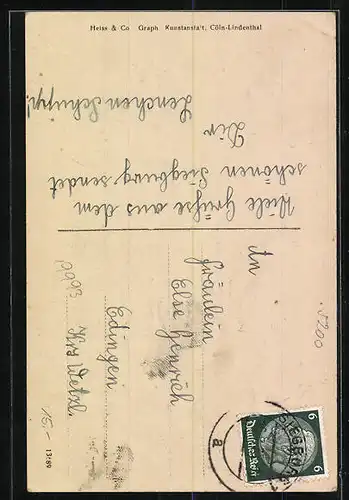 Heiss & Co Graph Kunstanstalt, Cöln-Lindenthal
Viele Grüße aus dem
schönen Siegburg sendet
Dir
Lenchen Schupp!
An
Fräulein
Else Henrich
Edingen
Krs Wetzl.
(9913
5200
15.-
13789
SIEGBURG
a
6 6
Deutsches Reich